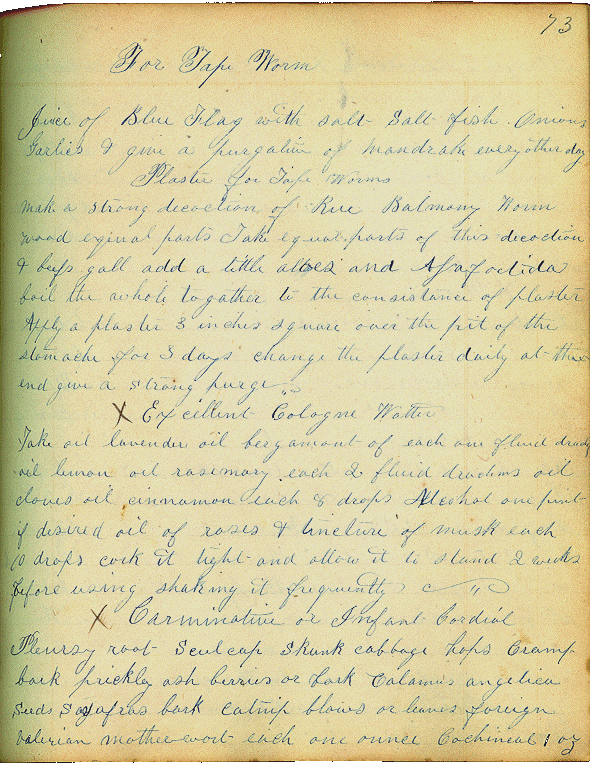 73
For Tape Worm
Juice of Blue Flag with salt Salt fish. Onions
Garlics & give a purgative of Mandrake every other day
Plaster for Tape Worms
make a strong decoction of Rue Balmony Worm
wood equal parts Take equal parts of this decoction
& beefs gall add a little alloes and Assafoetida
boil the whole togather to the consistance of plaster
Apply a plaster 3 inches square over the pit of the
stomache for 3 days change the plaster daily at the
end give a strong purge
X Excellent Cologne Watter
Take oil lavender oil bergamount of each one fluid drachm
oil lemon oil rosemary each 2 fluid drachms oil
cloves oil cinnamon each 8 drops Alcohol one pint
if desired oil of roses & tincture of musk each
10 drops cork it tight and allow it to stand 2 weeks
before using shaking it frequently
X Carminative or Infant Cordial
Pleursy root Sculcap Skunk cabbage hops Cramp
bark prickly ash berries or bark Calamus angelica
seeds Sassafras bark catnip blows or leaves foreign
valerian mother wort each one ounce Cochineal 1 oz